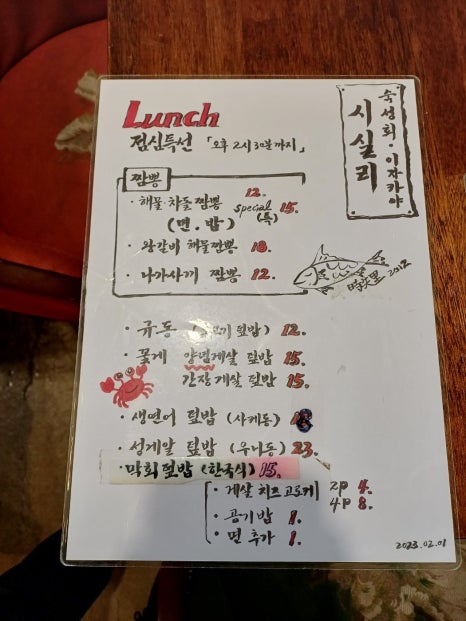 Lunch
점심특선 「오후 2시30분까지」
숙성회·이자카야
시실리
짬뽕
· 해물차돌짬뽕 12.
(면.밥) special (특) 15.
· 왕갈비 해물짬뽕 18.
· 나가사끼 짬뽕 12.
2012
· 규동 (기덮밥) 12.
· 꽃게 양념게살 덮밥 15.
간장게살 덮밥 15.
· 생연어 덮밥 (사케동)
· 성게알 덮밥 (우니동) 23.
· 막회덮밥 (한국식) 15.
· 게살 치즈 고로케 2P 4.
4P 8.
· 공기밥 1.
· 면 추가 1.
2023.02.01